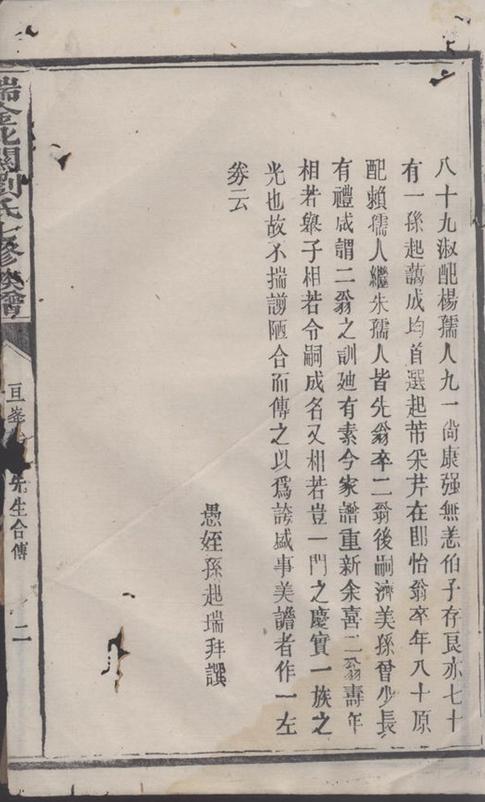 八十九淑配楊孺人九一尚康强無恙伯子存良亦七十
有一孫起蕅成均首選起芾采芹在即怡翁卒年八十原
配賴孺人繼朱孺人皆先翁卒二翁後嗣濟美孫曾少長
有禮咸謂二翁之訓廸有素今家譜重新余喜二翁壽年
相若舉子相若令嗣成名又相若豈一門之慶實一族之
光也故不揣謭陋合而傳之以爲誇盛事美譫者作一左
劵云
愚姪孫起瑞拜譔
瑞金北關劉氏七修族譜
亘峯 先生合傳
二